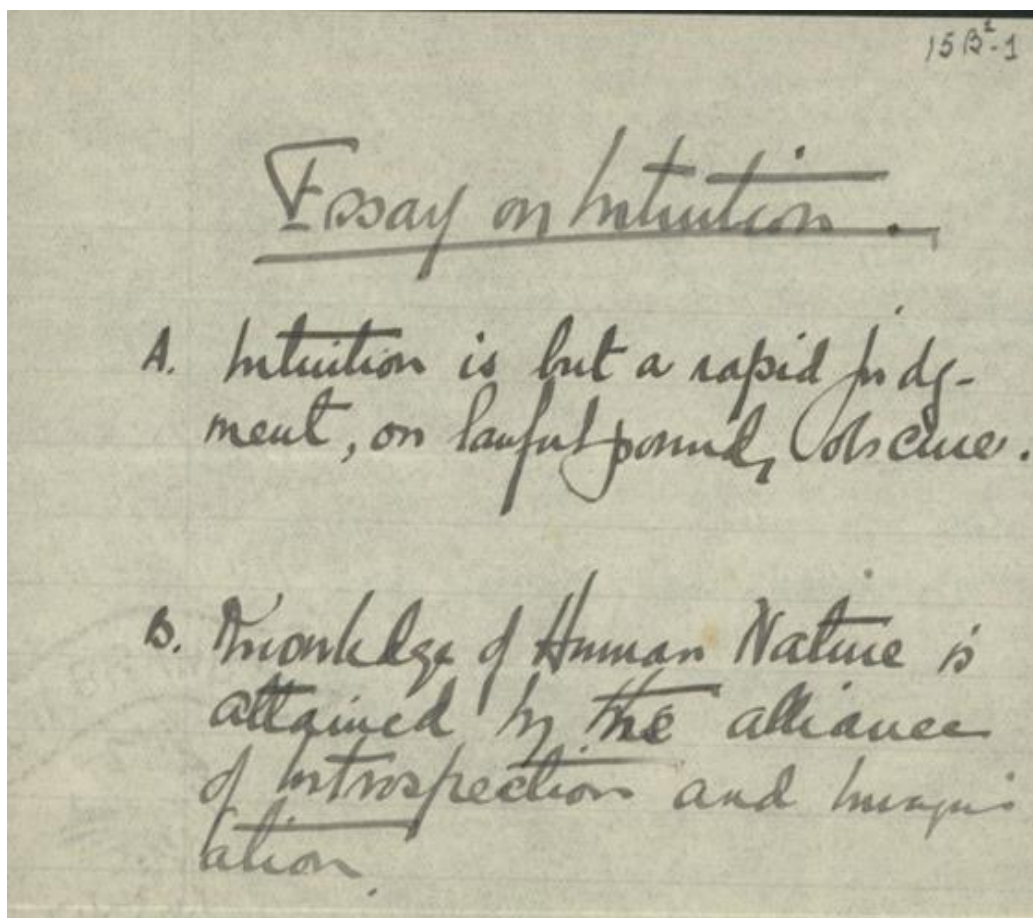 15 B²-1
Essay on Intuition.
A. Intuition is but a rapid judg-
ment, on lawful ground, obscure.
B. Knowledge of Human Nature is
attained by the alliance
of introspection and imagin
ation.